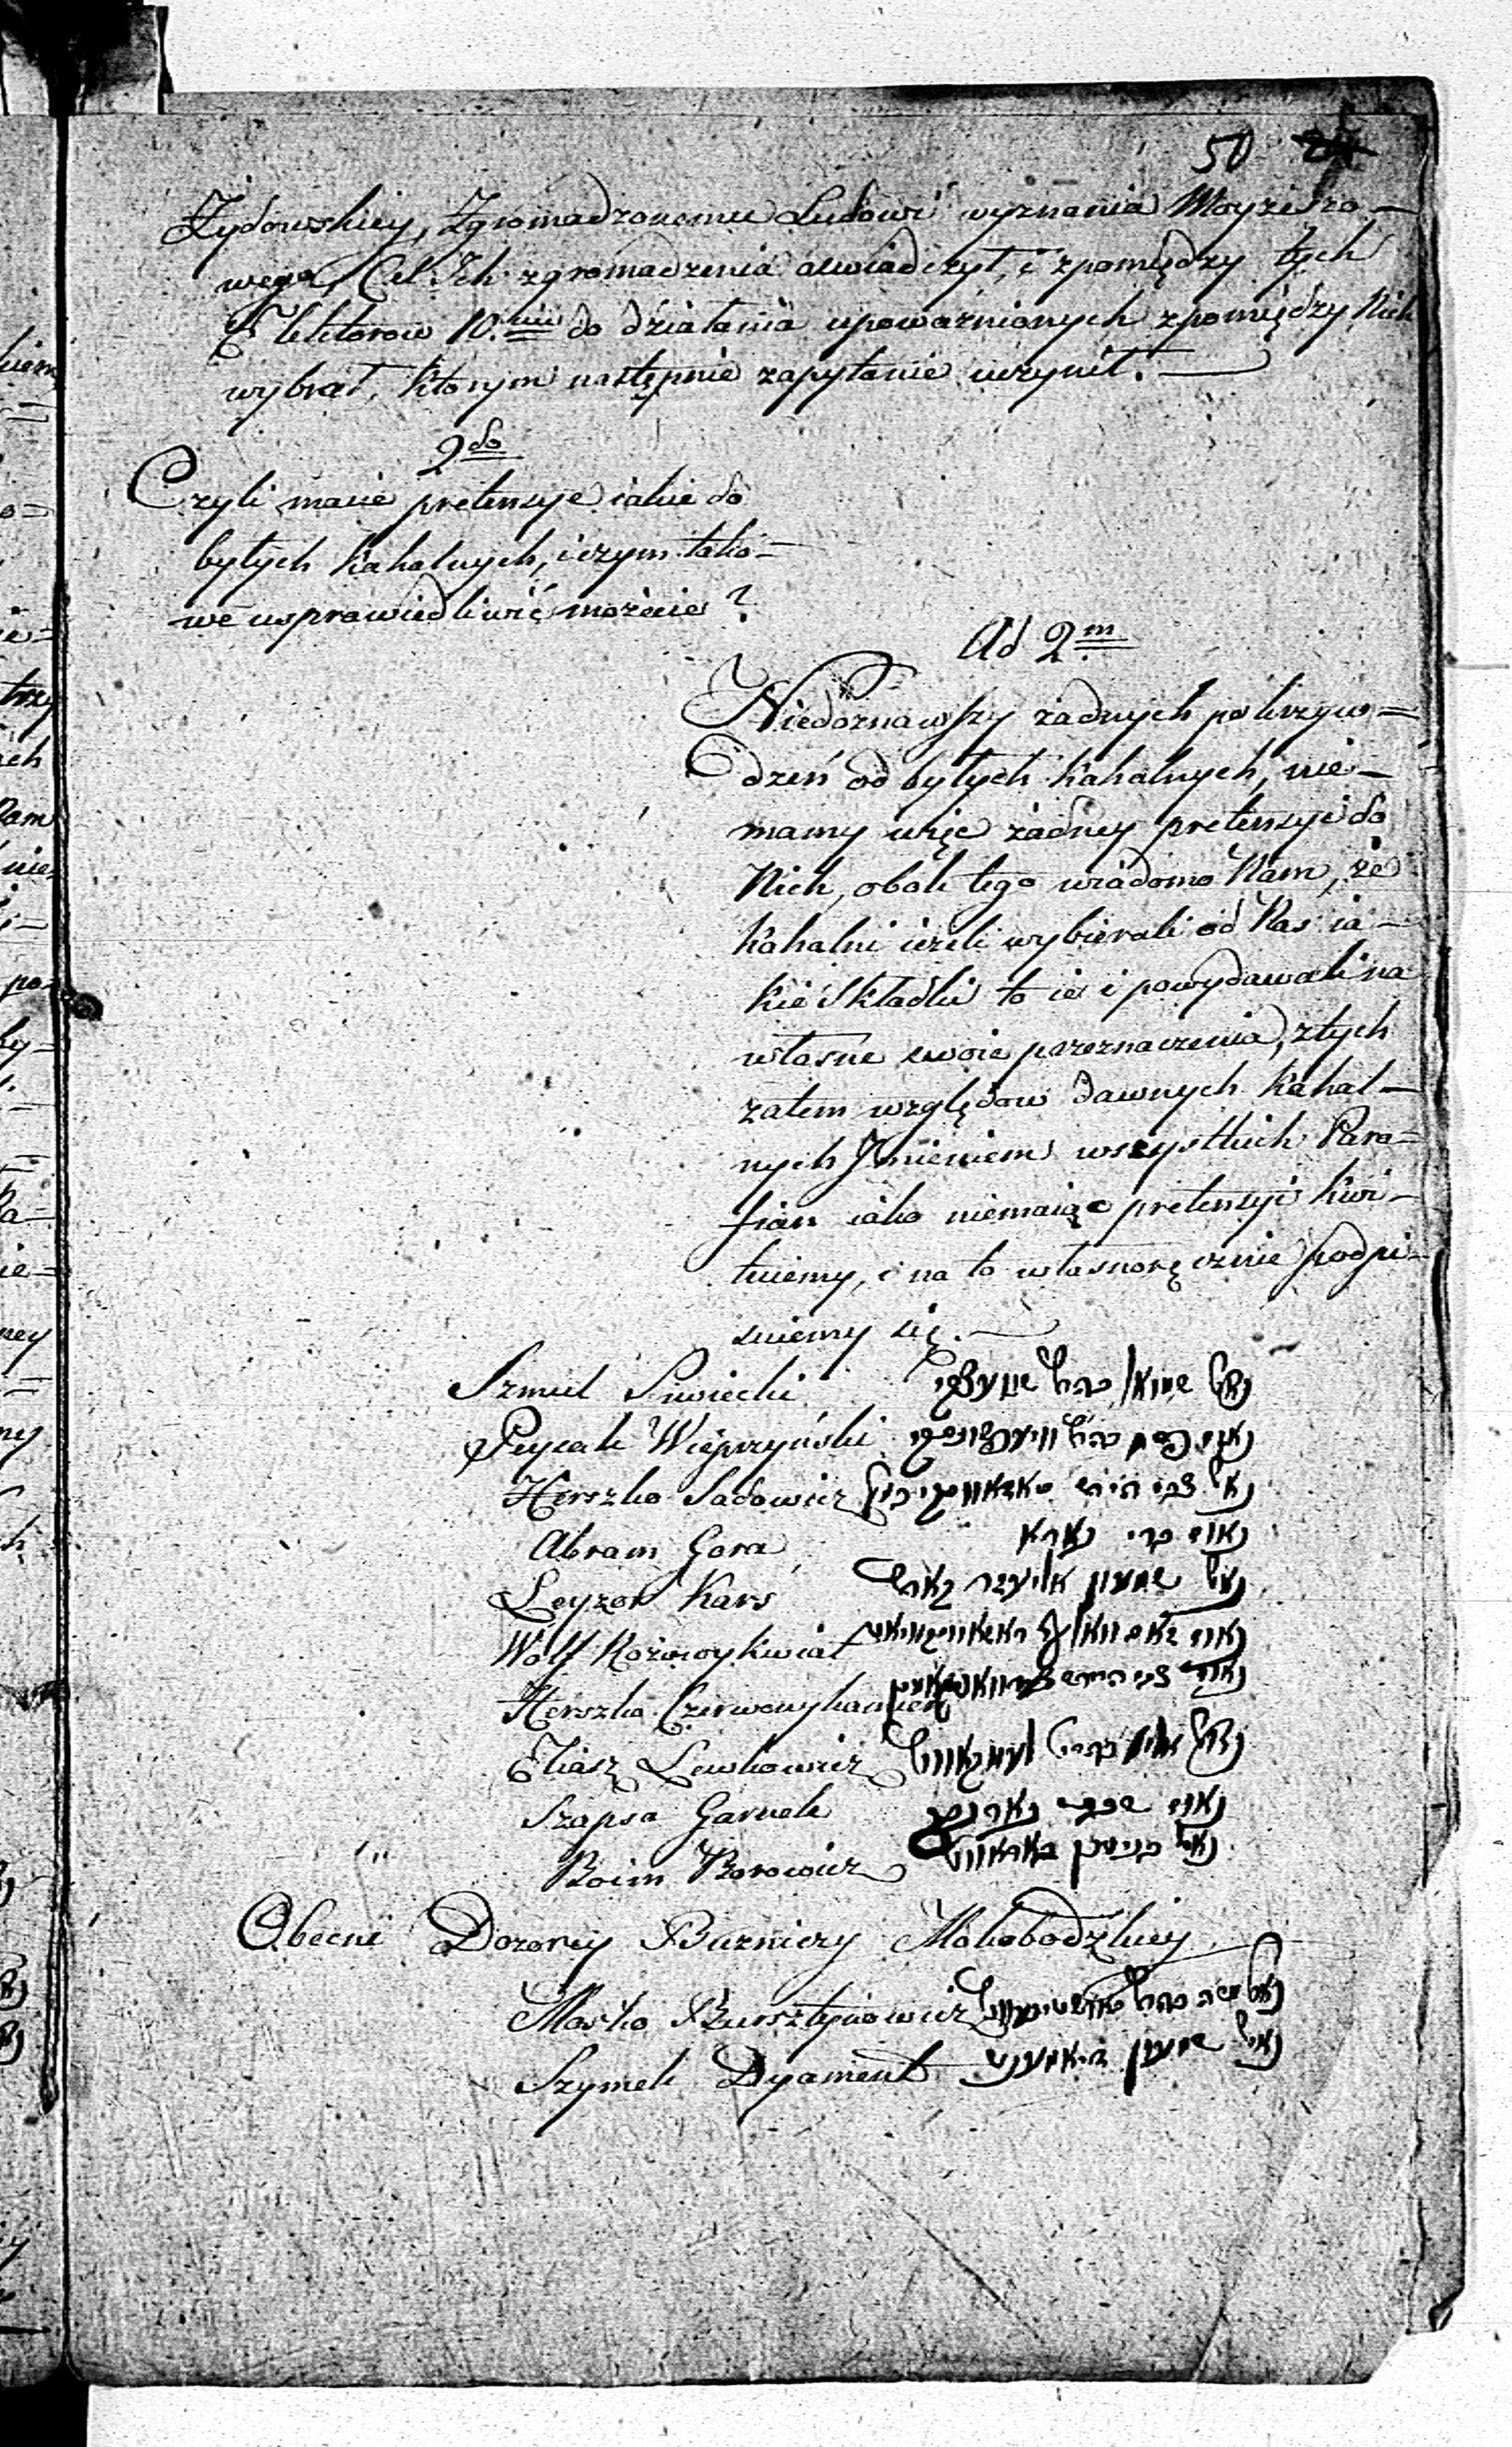 50
Żydowskiey, Zgromadzonemu Ludowi wyznania Moyżeszo-
wego, Cel Ich zgromadzenia oswiadczył, i zpomiędzy tych
Elektorow 10.ciu do działania upoważnionych zpomiędzy Nich
wybrał, którym następnie zapytanie uczynił. —
2do
Czyli macie pretensye iakie do
byłych Kahalnych, i czym tako-
we usprawiedliwić możecie?
Ad 2m
Niedoznawszy żadnych pokrzyw=
dzeń od byłych Kahalnych, nie-
mamy więc żadney pretensyi do
Nich, obok tego wiadomo Nam, że
Kahalni ieżeli wybierali od Nas ia-
kie Składki to ie i powydawali na
własne swoie przeznaczenia, z tych
zatem względow dawnych Kahal-
nych Jmieniem wszystkich Para-
fian iako niemaiąc pretensyi kwi-
tuiemy, i na to własnoręcznie podpi-
suiemy się. —
Szmul Siwiecki נאם שמואל
Peysak Wieprzyński
Herszko Sadowicz צבי הירש
Abram Gora גארא
Leyzor Kars נאם שמעון אליעזר קארס
Wolf Rożowykwiat וואלף
Herszko Czerwonykamień צבי הירש
Eliasz Lewkowicz
Szapsa Garnek נאום שבסי גארנק
Boim Borowicz
Obecni Dozorcy Bużniczy Mokobodzkiey
Mosko Bursztynowicz נאם משה
Szymek Dyament נאם שמעון דיאמענט